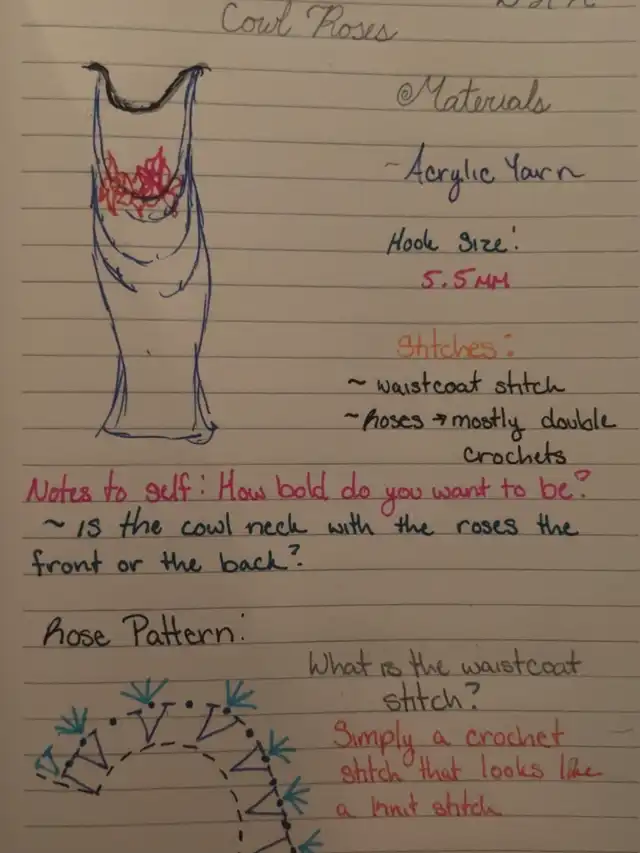 Cowl Roses
@Materials
~ Acrylic Yarn
Hook Size:
5.5MM
Stitches:
~ waistcoat stitch
~ Roses → mostly double
crochets
Notes to self: How bold do you want to be?
~ is the cowl neck with the roses the
front or the back?
Rose Pattern:
What is the waistcoat
stitch?
Simply a crochet
stitch that looks like
a knit stitch